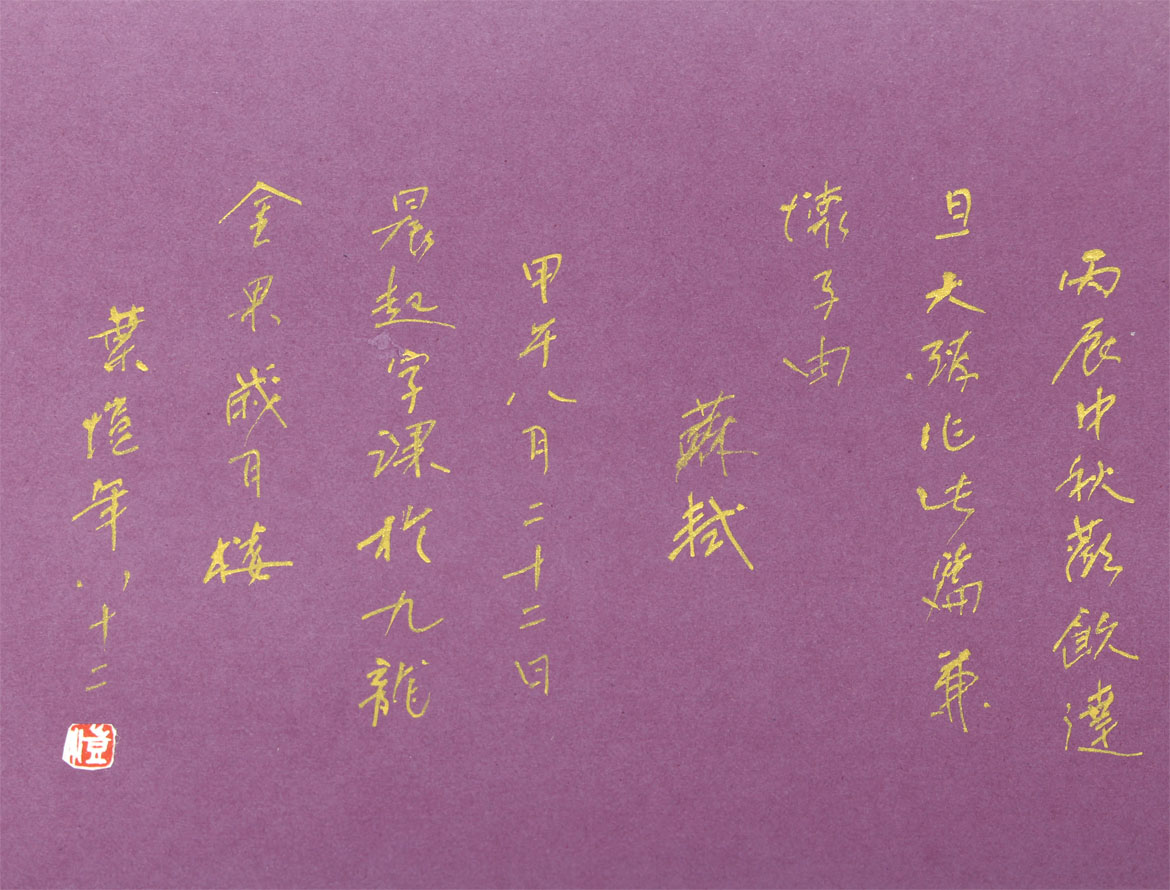 丙辰中秋歡飲達
旦大醉作此篇兼
懷子由
蘇軾
甲午八月二十二日
晨起字課於九龍
金果歲月樓
葉愷年八十二
愷